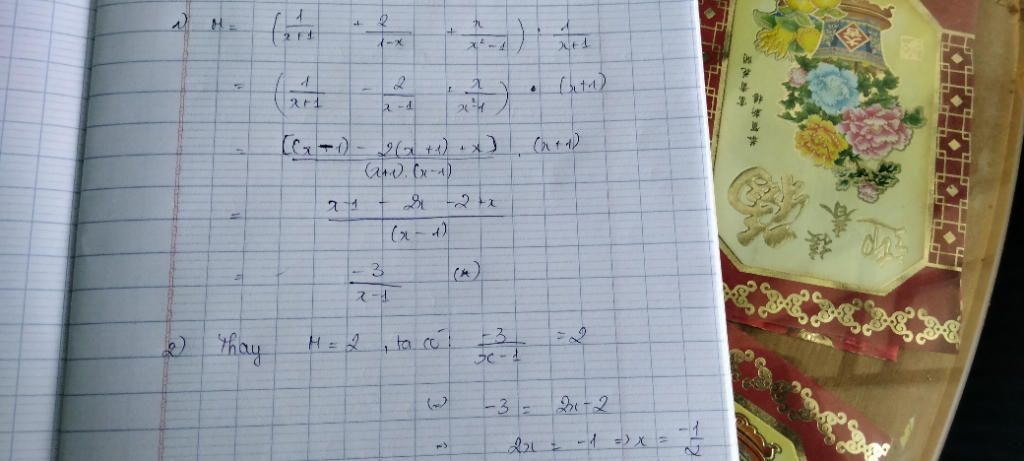 1) H = (1/(x+1) + 2/(1-x) + x/(x²-1)) : 1/(x+1)
= (1/(x+1) - 2/(x-1) + x/(x²-1)) . (x+1)
= [(x-1) - 2(x+1) + x]/((x+1).(x-1)) . (x+1)
= (x-1 - 2x - 2 + x)/(x-1)
= -3/(x-1) (*)
2) Thay H = 2, ta có: -3/(x-1) = 2
(=) -3 = 2x-2
=) 2x = -1 => x = -1/2
迎春接福